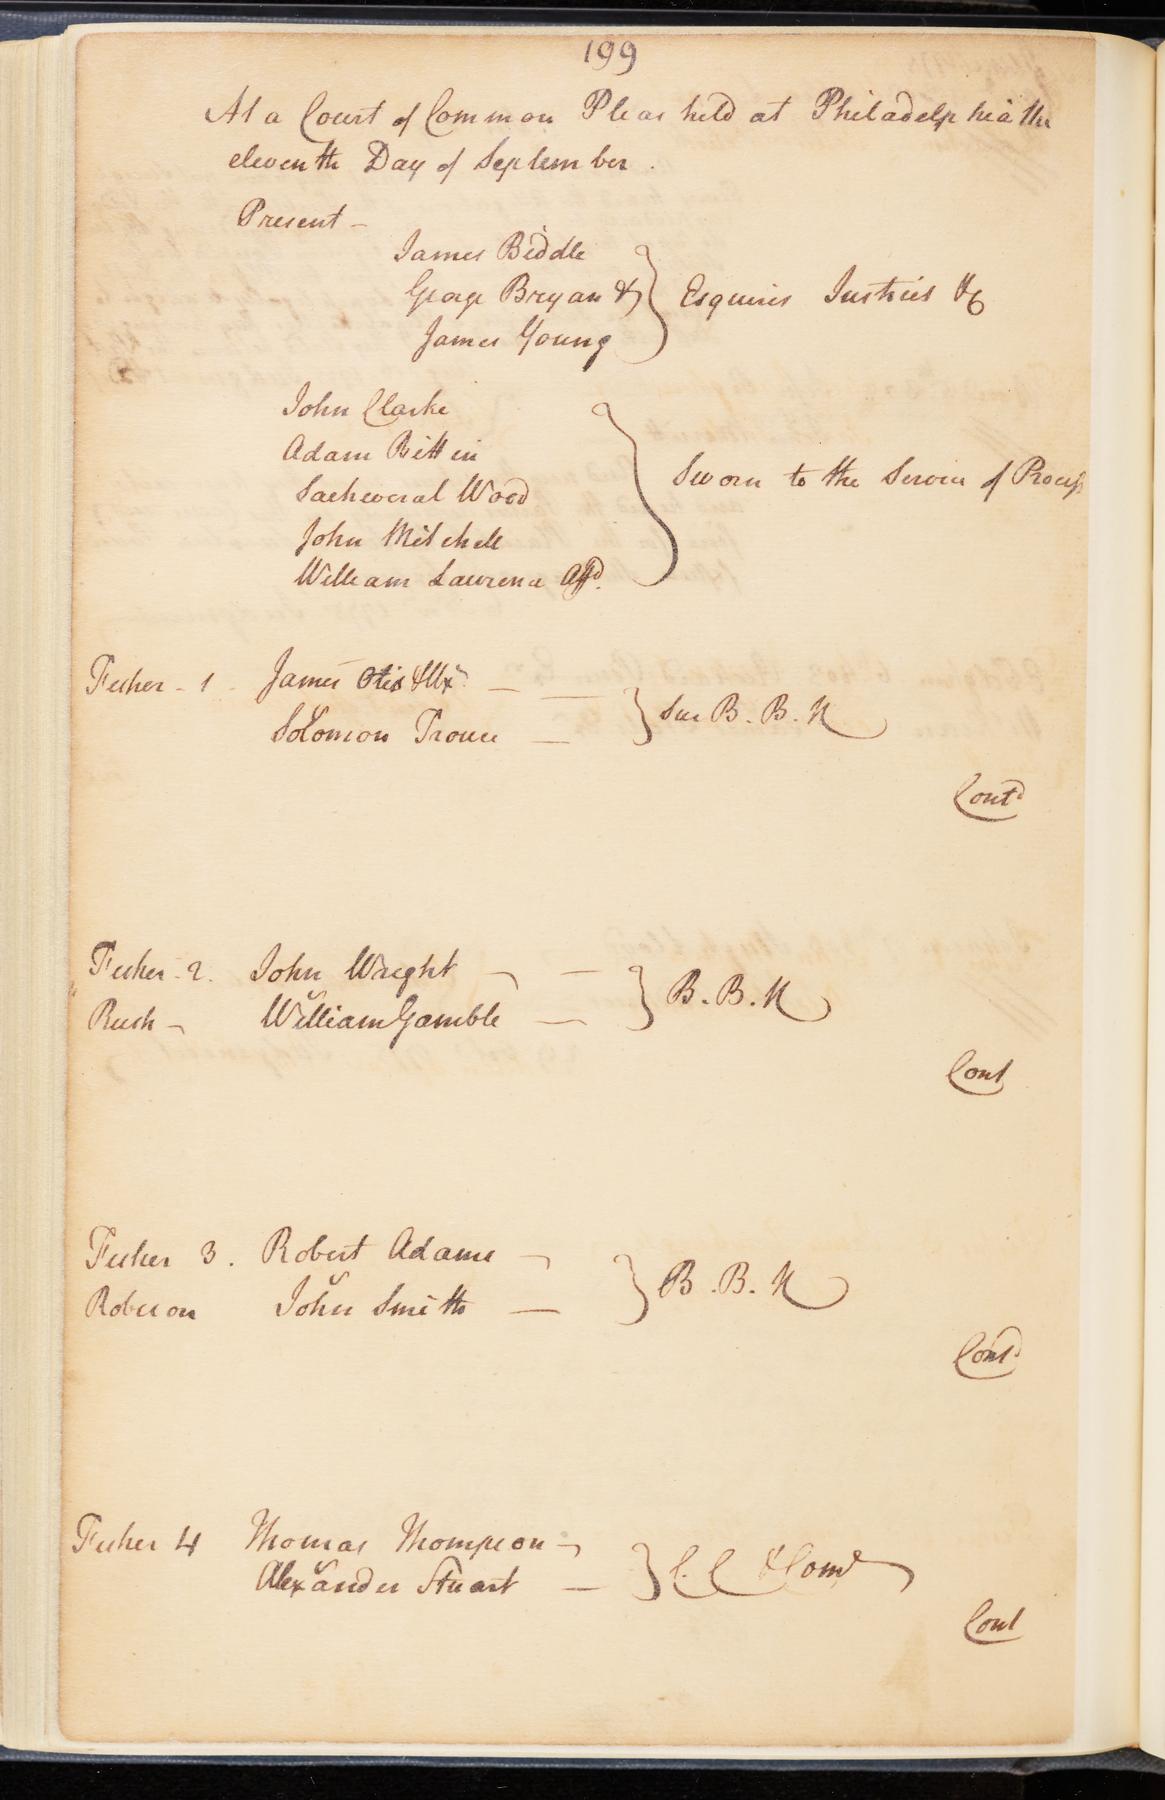 199
At a Court of Common Pleas held at Philadelphia the
eleventh Day of September.
Present -
James Biddle
George Bryan & } Esquires Justices &c
James Young
John Clarke
Adam Bittin
Sacheveral Wood } Sworn to the Service of Process
John Mitchell
William Laurence Affd.
Fisher - 1 James Otis & Ux
v
Solomon Trouce } Sur B. B. N
Contd
Fisher - 2. John Wright
v
Rush - William Gamble } B. B. N
Cont
Fisher 3. Robert Adams
v
Roberson John Smith } B. B. N
Contd
Fisher 4 Thomas Thompson
v
Alexander Stuart } C. C & Comt
Cont